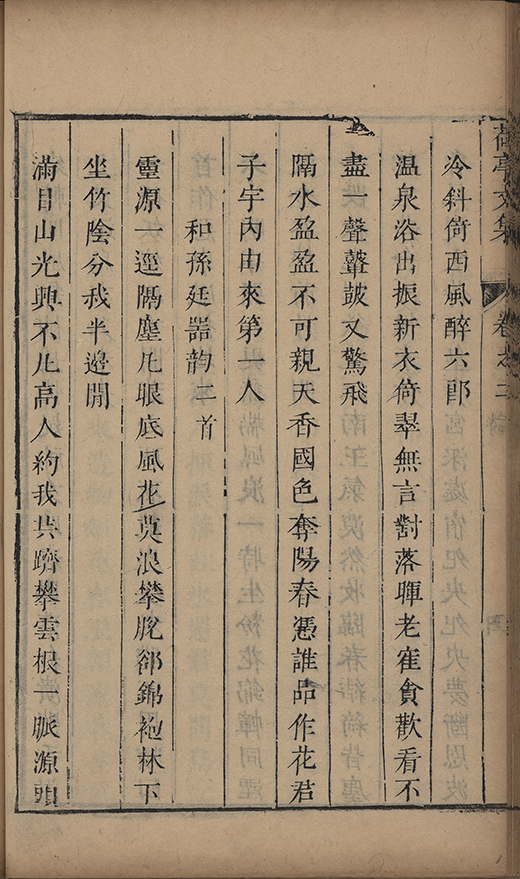 亭文集 卷之二
冷斜倚西風醉六郎
温泉浴出振新衣倚翠無言對落暉老崔貪歡看不
盡一聲鼙皷又驚飛
隔水盈盈不可親天香國色奪陽春憑誰品作花君
子宇內由來第一人
和孫廷器韵二首
靈源一逕隔塵凡眼底風花莫浪攀脫郤錦袍林下
坐竹陰分我半邊閒
滿目山光興不凡高人約我共躋攀雲根一脈源頭